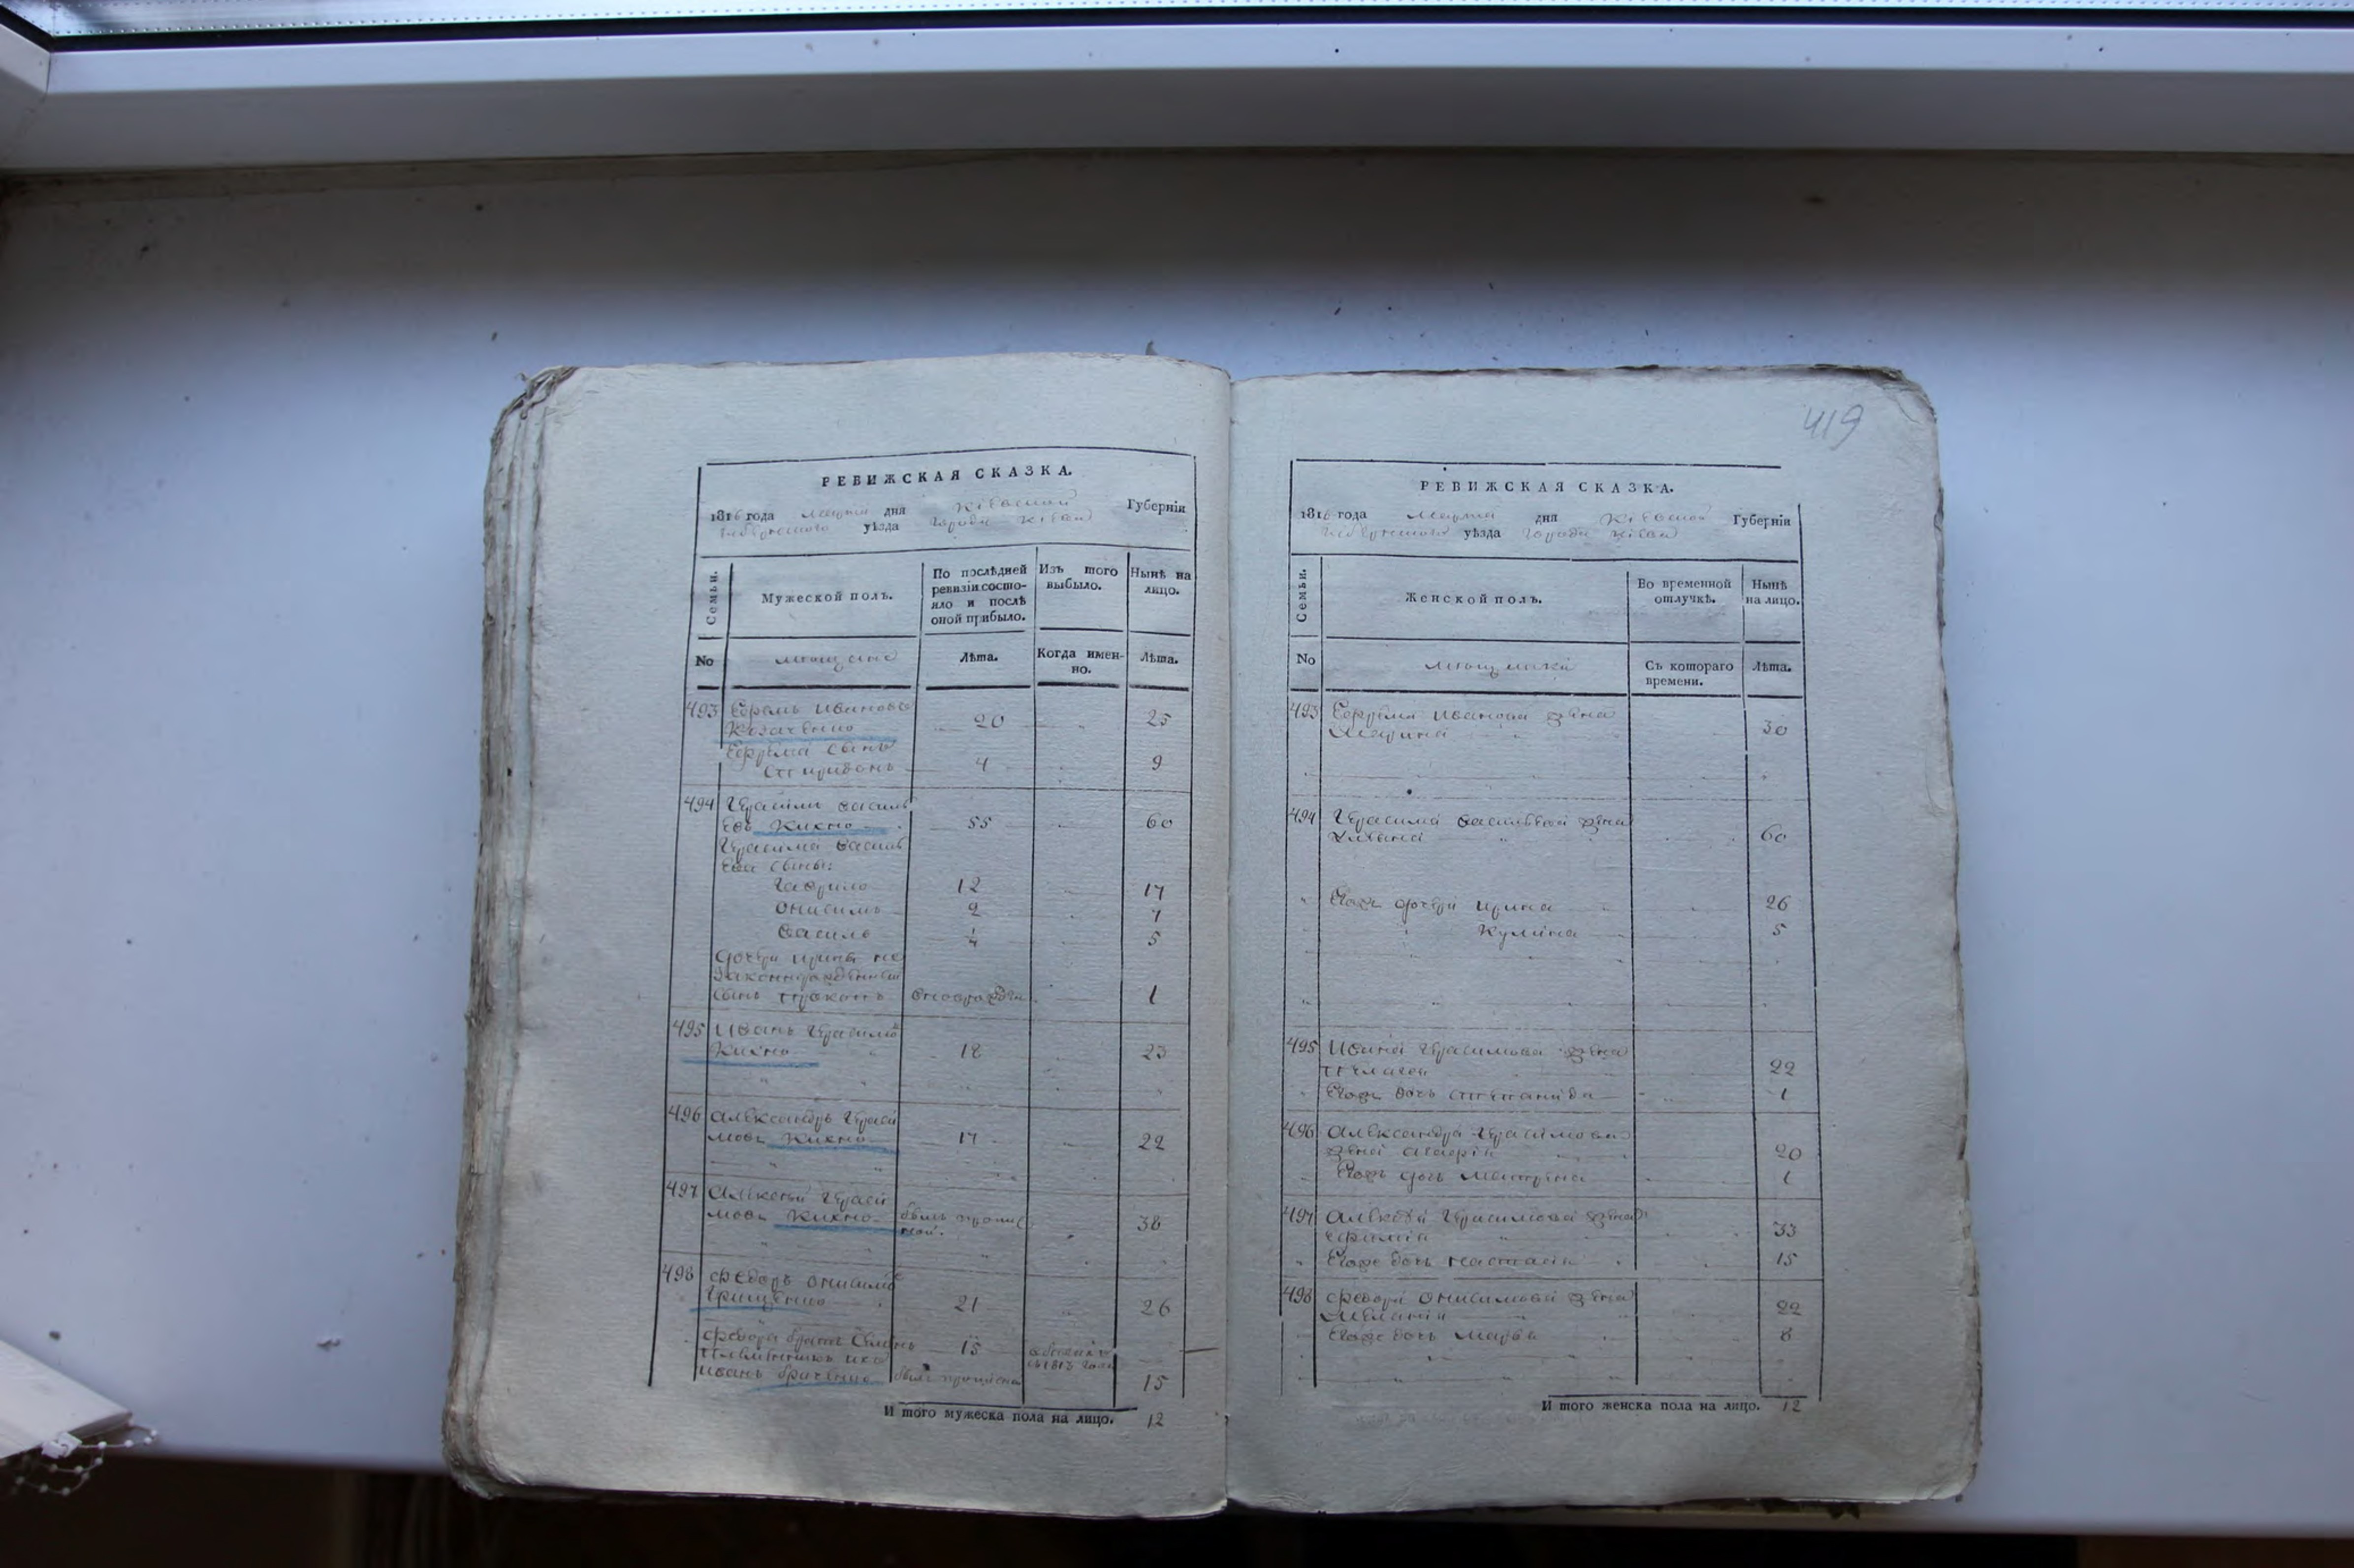 419
РЕВИЖСКАЯ СКАЗКА.
1816 года Марта дня Кіевской Губерніи
уѣзда Города Кіева
Семьи.
Мужеской полъ.
По послѣдней ревизіи состояло и послѣ оной прибыло.
Изъ того выбыло.
Нынѣ на лицо.
No
мещане
Лѣта.
Когда именно.
Лѣта.
493 Ефремъ Ивановъ
Козаченко 20 25
Ефрема сынъ
Спиридонъ 4 9
494 Герасимъ Василь
евъ Кихно 55 60
Герасима Василь
ева сыны:
Гаврило 12 17
Онисимъ 2 7
Василь 1/4 5
дочери Ирины не
законнорожденный
сынъ новорожден 1
495 Иванъ Герасимо
Кихно 18 23
496 Александръ Гераси
мовъ Кихно 17 22
497 Алексей Гераси
мовъ Кихно былъ 38
498 Федоръ Онисимо
Грищенко 21 26
Федора братъ Семенъ 15
въ 1813 года
Иванъ былъ 15
И того мужеска пола на лицо. 12
РЕВИЖСКАЯ СКАЗКА.
1816 года Марта дня Кіевской Губерніи
уѣзда Города Кіева
Семьи.
Женской полъ.
Во временной отлучкѣ.
Нынѣ на лицо.
No
мещанки
Съ котораго времени.
Лѣта.
493 Ефрема Иванова жена
Марина 30
494 Герасима Васильева жена
Ульяна 60
Егожъ дочери Ирина 26
Кулина 5
495 Ивана Герасимова жена
Пелагея 22
Егожъ дочь Степанида 1
496 Александра Герасимова
жена 20
Егожъ дочь Матрина 1
497 Алексея Герасимова жена
Ефимія 33
Егоже дочь Настасія 15
498 Федора Онисимова жена
Меланія 22
Егоже дочь Марья 8
И того женска пола на лицо. 12